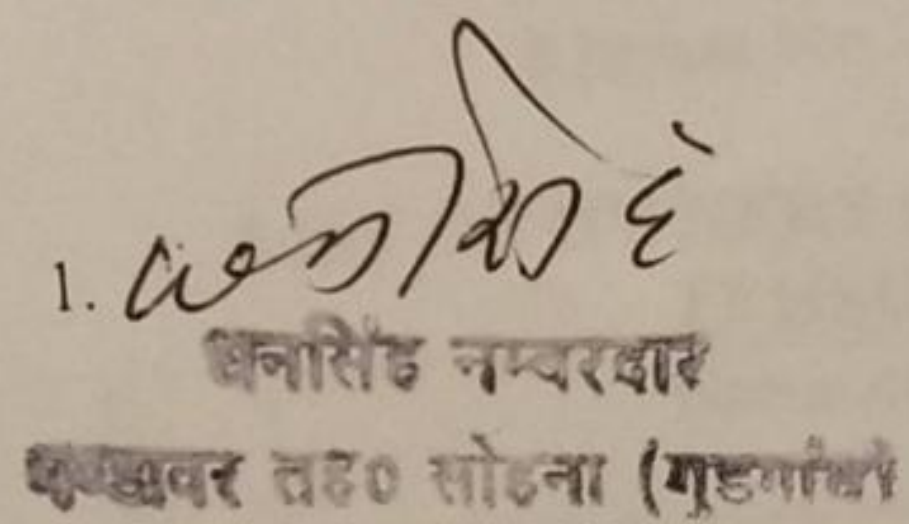 1. धनसिंह
धनसिंह नम्बरदार
तह० सोहना (गुडगांवा)